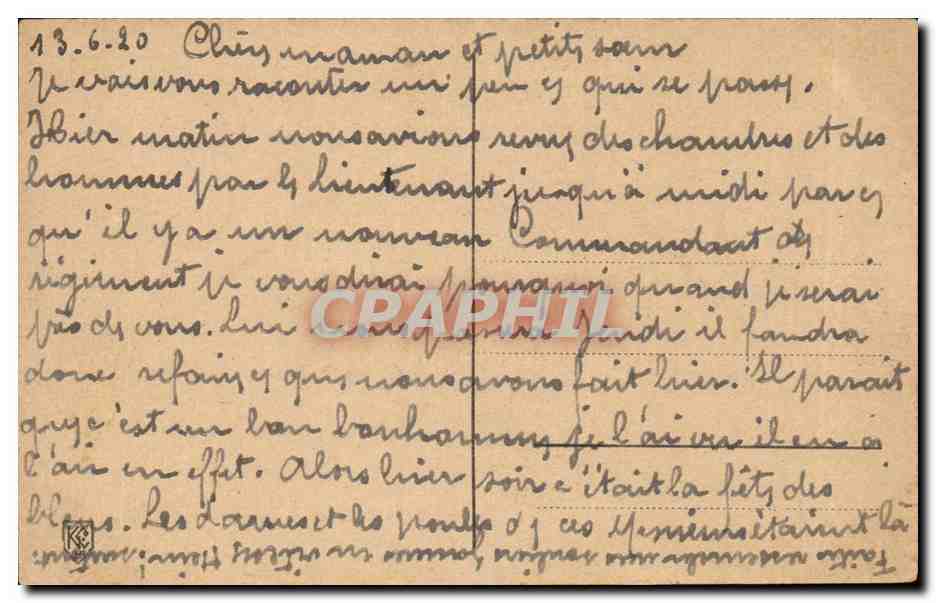 13.6.20 Chère maman et petite sœur
Je vais vous raconter un peu ce qui se passe.
Hier matin nous avions revue des chambres et des
hommes par le lieutenant jusqu'à midi parce
qu'il y a un nouveau Commandant de
régiment je vous dirai pourquoi quand je serai
près de vous. Lui Jeudi il faudra
donc refaire ce que nous avons fait hier. Il parait
que c'est un bon bonhomme, je l'ai vu il en a
l'air en effet. Alors hier soir c'était la fête des
bleus. Les dames et les poules de ces messieurs étaient là
CPARPHIL